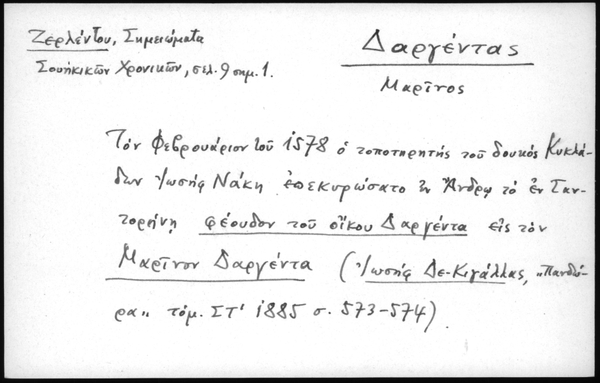 Ζερλέντου, Σημειώματα
Σουηκικῶν Χρονικῶν, σελ. 9 σημ. 1.
Δαργέντας
Μαρῖνος
Τὸν Φεβρουάριον τοῦ 1578 ὁ τοποτηρητής τοῦ δουκός Κυκλά-
δων Ἰωσήφ Νάκη ἐπεκυρώσατο ἐν Ἄνδρῳ τὸ ἐν Σαν-
τορήνῃ φέουδον τοῦ οἴκου Δαργέντα εἰς τὸν
Μαρῖνον Δαργέντα (Ἰωσήφ Δε-Κιγάλλας, "Πανδώ-
ρα" τόμ. ΣΤ' 1885 σ. 573-574).